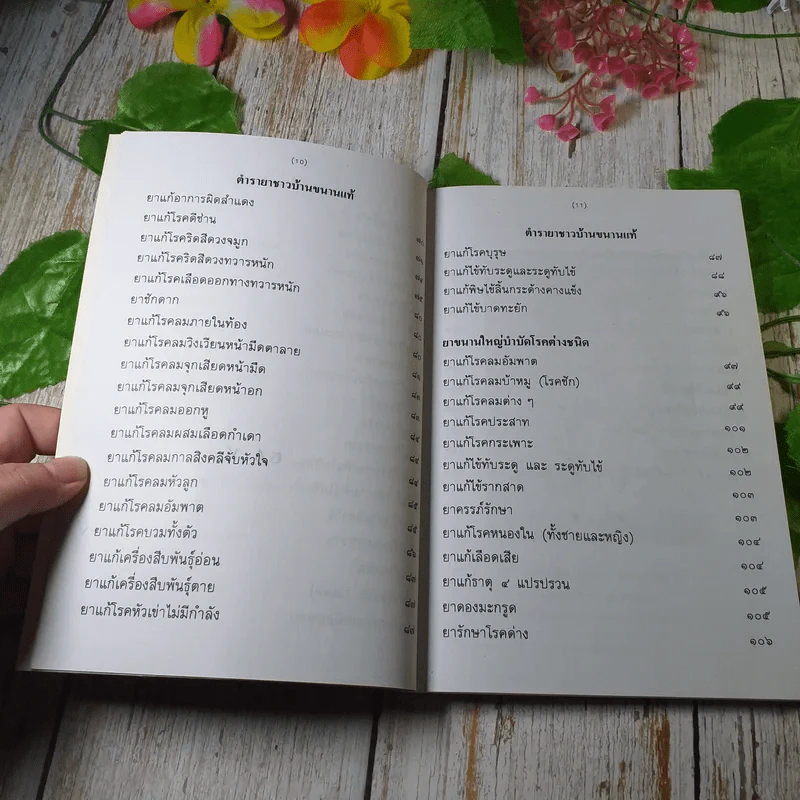 (10)
ตำรายาชาวบ้านขนานแท้
ยาแก้อาการผิดสำแดง
ยาแก้โรคดีซ่าน
ยาแก้โรคริดสีดวงจมูก
ยาแก้โรคริดสีดวงทวารหนัก
ยาแก้โรคเลือดออกทางทวารหนัก
ยาชักดาก
ยาแก้โรคลมภายในท้อง
ยาแก้โรคลมวิงเวียนหน้ามืดตาลาย
ยาแก้โรคลมจุกเสียดหน้ามืด
ยาแก้โรคลมจุกเสียดหน้าอก
ยาแก้โรคลมออกหู
ยาแก้โรคลมผสมเลือดกำเดา
ยาแก้โรคลมกาลสิงคลีจับหัวใจ
ยาแก้โรคลมหัวลูก
ยาแก้โรคลมอัมพาต
ยาแก้โรคบวมทั้งตัว
ยาแก้เครื่องสืบพันธุ์อ่อน
ยาแก้เครื่องสืบพันธุ์ตาย
ยาแก้โรคหัวเข่าไม่มีกำลัง
(11)
ตำรายาชาวบ้านขนานแท้
ยาแก้โรคบุรุษ ๘๗
ยาแก้ไข้ทับระดูและระดูทับไข้ ๘๘
ยาแก้พิษไข้ลิ้นกระด้างคางแข็ง ๙๖
ยาแก้ไข้บาดทะยัก ๙๖
ยาขนานใหญ่บำบัดโรคต่างชนิด
ยาแก้โรคลมอัมพาต ๙๗
ยาแก้โรคลมบ้าหมู (โรคชัก) ๙๙
ยาแก้โรคลมต่าง ๆ ๙๙
ยาแก้โรคประสาท ๑๐๑
ยาแก้โรคกระเพาะ ๑๐๒
ยาแก้ไข้ทับระดู และ ระดูทับไข้ ๑๐๒
ยาแก้ไข้รากสาด ๑๐๓
ยาครรภ์รักษา ๑๐๓
ยาแก้โรคหนองใน (ทั้งชายและหญิง) ๑๐๔
ยาแก้เลือดเสีย ๑๐๔
ยาแก้ธาตุ ๔ แปรปรวน ๑๐๕
ยาดองมะกรูด ๑๐๕
ยารักษาโรคด่าง ๑๐๖